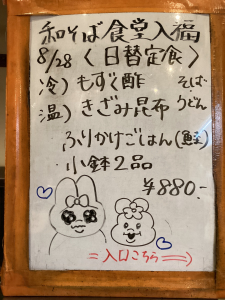 和そば食堂入福
8/28 〈日替定食〉
冷) もずく酢 そば・
温) きざみ昆布 うどん
ふりかけごはん(鮭)
小鉢2品
¥880.-
=入口こちら==⇒